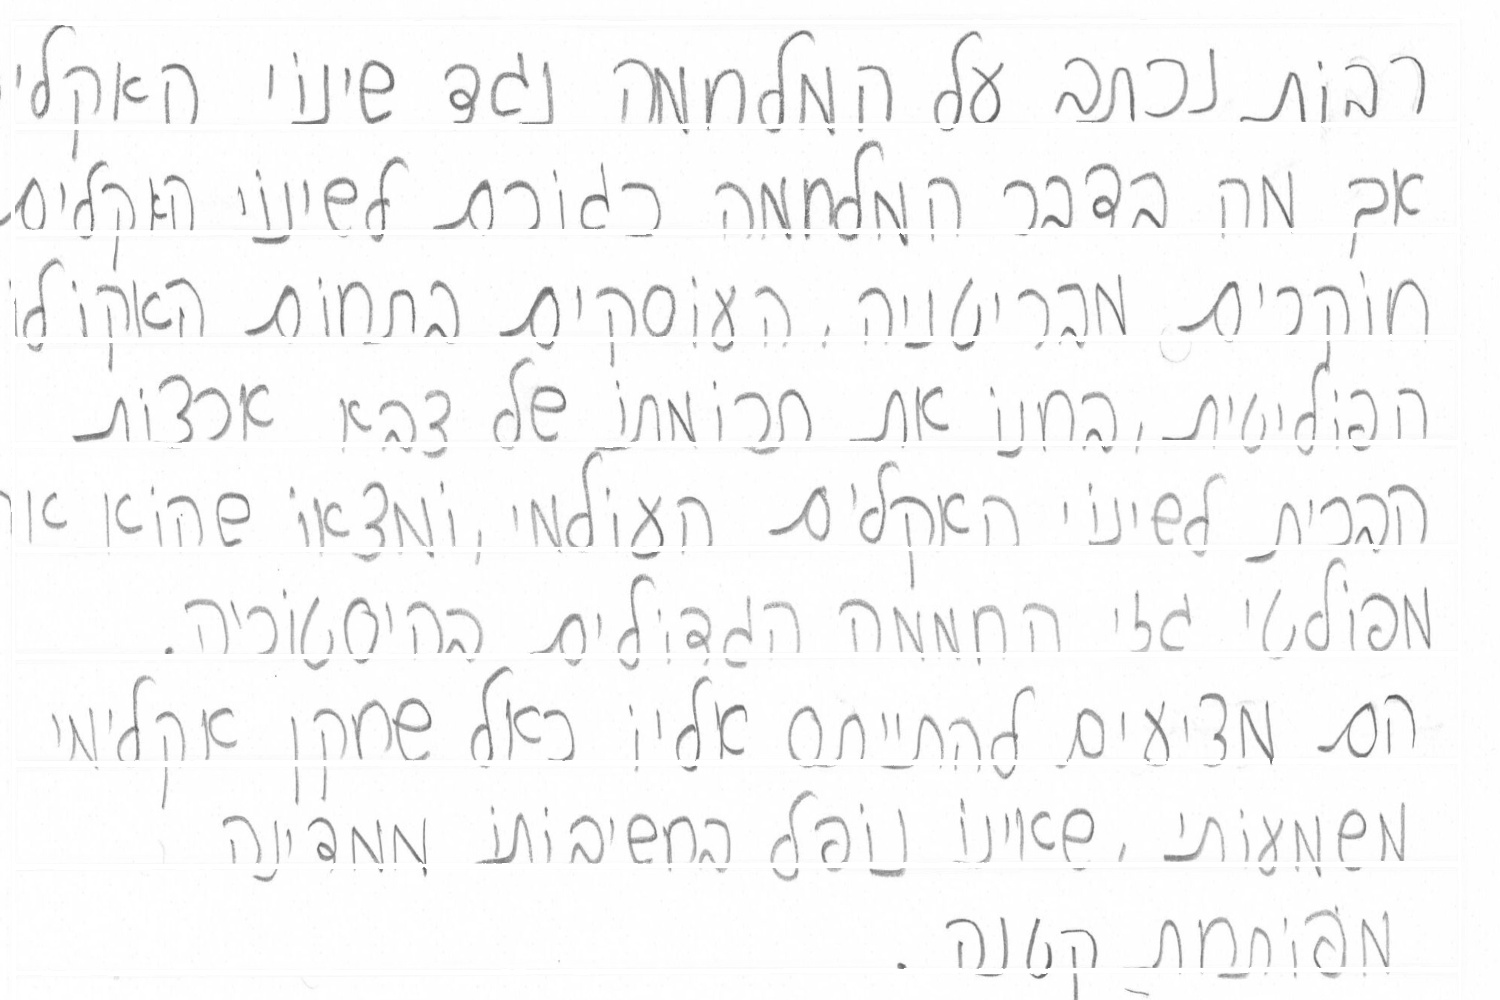 רבות נכתב על המלחמה נגד שינוי האקלי
אך מה בדבר המלחמה כגורם לשינוי האקלים
חוקרים מבריטניה, העוסקים בתחום האקולו
הפוליטית, בחנו את תרומתו של צבא ארצות
הברית לשינוי האקלים העולמי, ומצאו שהוא
מפולטי גזי החממה הגדולים בהיסטוריה.
הם מציעים להתייחס אליו כאל שחקן אקלימי
משמעותי, שאינו נופל בחשיבותו ממדינה
מפותחת קטנה.